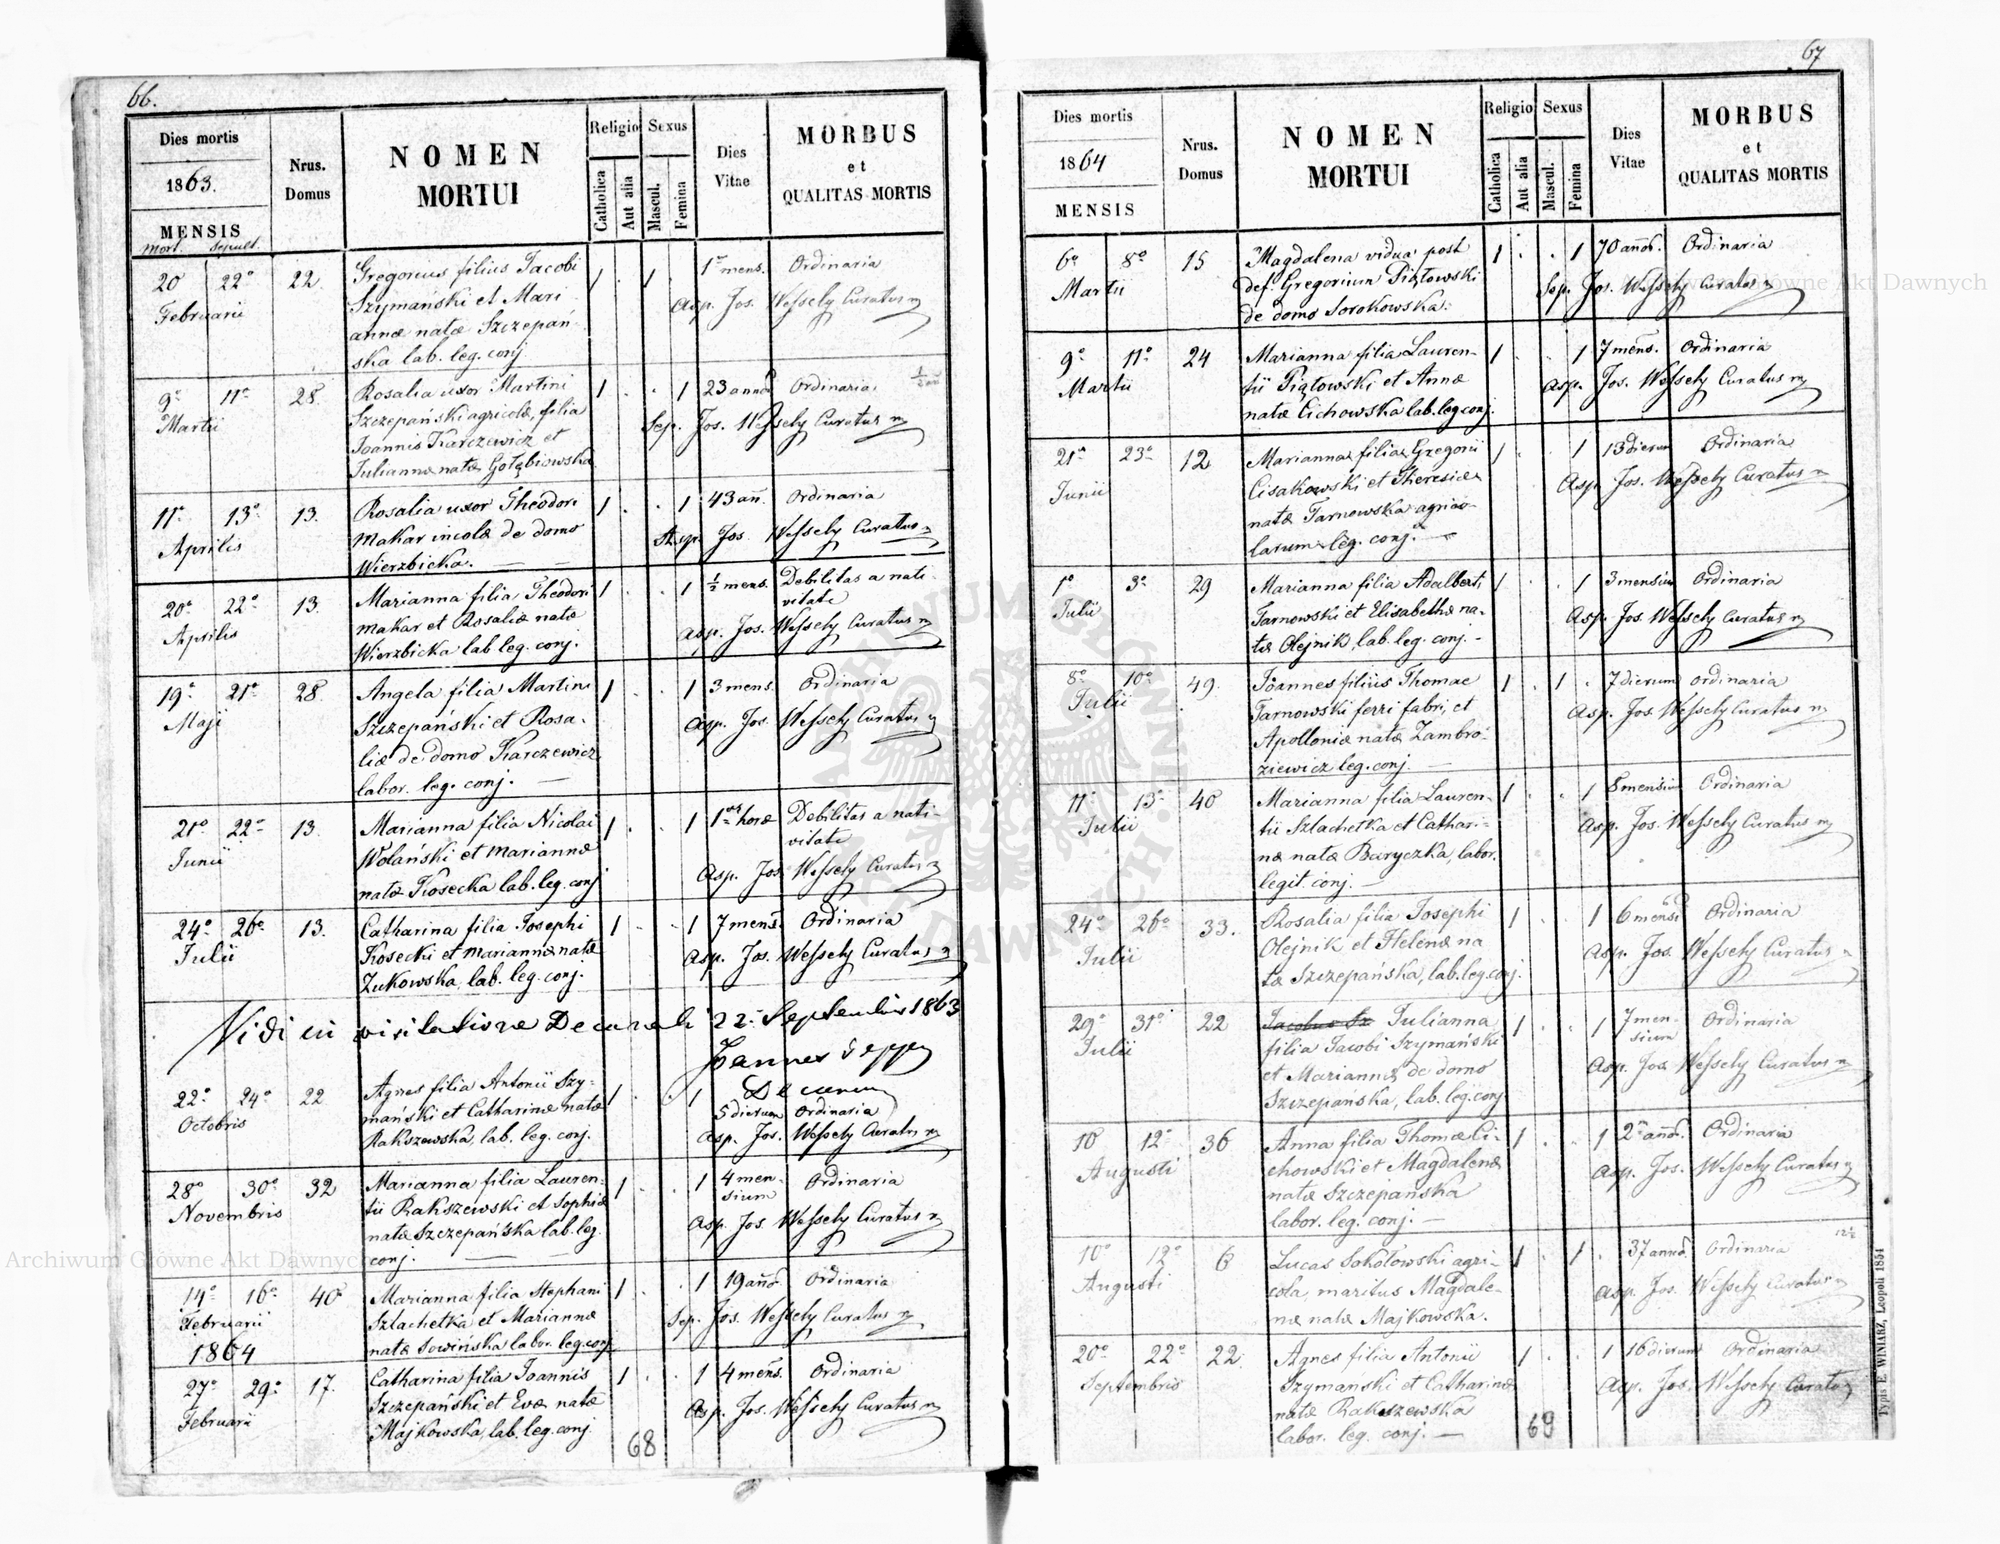 66.
Dies mortis
1863.
MENSIS
Mort. Sepult.
Nrus.
Domus
NOMEN
MORTUI
Religio
Catholica
Aut alia
Sexus
Mascul.
Femina
Dies
Vitae
MORBUS
et
QUALITAS MORTIS
20 22° 22. Gregorius filius Jacobi 1 1 1 mens. Ordinaria
Februarii Szymański et Mari- Asp. Jos. Wessely Curatus
annæ natæ Szczepań-
ska lab. leg. conj.
9° 11° 28. Rosalia uxor Martini 1 . . 1 23 annor. Ordinaria
Martii Szczepański agricolæ, filia Sep. Jos. Wessely Curatus
Joannis Karczewicz et
Juliannæ natæ Gołębiowska
11° 13° 13. Rosalia uxor Theodori 1 . . 1 43 an. Ordinaria
Aprilis Makar incolæ de domo Asp. Jos. Wessely Curatus
Wierzbicka.
20° 22° 13. Marianna filia Theodori 1 . . 1 ½ mens. Debilitas a nati-
vitate
Aprilis Makar et Rosaliæ natæ Asp. Jos. Wessely Curatus
Wierzbicka lab. leg. conj.
19° 21° 28 Angela filia Martini 1 . . 1 3 mens. Ordinaria
Maji Szczepański et Rosa- Asp. Jos. Wessely Curatus
liæ de domo Karczewicz
labor. leg. conj.
21° 22° 13. Marianna filia Nicolai 1 . . 1 1 horæ Debilitas a nati-
vitate
Junii Wolański et Mariannæ Asp. Jos. Wessely Curatus
natæ Kosecka lab. leg. conj
24° 26° 13. Catharina filia Josephi 1 . . 1 7 mens. Ordinaria
Julii Kosecki et Mariannæ natæ Asp. Jos. Wessely Curatus
Żukowska, lab. leg. conj.
Vidi in visitatione Decanali 22 Septembris 1863
Joannes
Decanus
22° 24° 22 Agnes filia Antonii Szy- 1 . . 1 5 dierum Ordinaria
Octobris mański et Catharinæ natæ Asp. Jos. Wessely Curatus
Rakszewska, lab. leg. conj.
28° 30° 32 Marianna filia Lauren- 1 . . 1 4 men- Ordinaria
sium
Novembris tii Rakszewski et Sophiæ Asp. Jos. Wessely Curatus
natæ Szczepańska lab. leg.
conj.
14° 16° 40 Marianna filia Stephani 1 . . 1 19 año. Ordinaria
Februarii Szlachetka et Mariannæ Sep. Jos. Wessely Curatus
1864 natæ Sowińska labor. leg. conj
27° 29° 17. Catharina filia Joannis 1 . . 1 4 mens. Ordinaria
Februarii Szczepański et Evæ natæ Asp. Jos. Wessely Curatus
Majkowska, lab. leg. conj.
68
67
Dies mortis
1864
MENSIS
Nrus.
Domus
NOMEN
MORTUI
Religio
Catholica
Aut alia
Sexus
Mascul.
Femina
Dies
Vitae
MORBUS
et
QUALITAS MORTIS
6° 8° 15 Magdalena vidua post 1 . . 1 70 annor. Ordinaria
Martii def. Gregorium Piątowski Sep. Jos. Wessely Curatus
de domo Sorokowska.
9° 11° 24 Marianna filia Lauren- 1 . . 1 7 mens. Ordinaria
Martii tii Piątowski et Annæ Asp. Jos. Wessely Curatus
natæ Cichowska lab. leg. conj.
21° 23° 12 Marianna filia Gregorii 1 . . 1 13 dierum Ordinaria
Junii Cisakowski et Theresiæ Asp. Jos. Wessely Curatus
natæ Tarnowska agrico-
larum leg. conj.
1° 3° 29 Marianna filia Adalberti 1 . . 1 3 mensium Ordinaria
Julii Tarnowski et Elisabethæ na- Asp. Jos. Wessely Curatus
tæ Olejnik, lab. leg. conj.
8° 10° 49. Joannes filius Thomae 1 . 1 . 7 dierum Ordinaria
Julii Tarnowski ferri fabri, et Asp. Jos. Wessely Curatus
Apolloniæ natæ Zambro-
ziewicz leg. conj.
11° 13° 40 Marianna filia Lauren- 1 . . 1 8 mensium Ordinaria
Julii tii Szlachetka et Cathari- Asp. Jos. Wessely Curatus
næ natæ Baryczka, labor.
legit. conj.
24° 26° 33. Rosalia filia Josephi 1 . . 1 6 mensi Ordinaria
Julii Olejnik et Helenæ na Asp. Jos. Wessely Curatus
tæ Szczepańska, lab. leg. conj.
29° 31° 22 Jacobus Sz Julianna 1 . . 1 7 men- Ordinaria
sium
Julii filia Jacobi Szymański Asp. Jos. Wessely Curatus
et Mariannæ de domo
Szczepanska, lab. leg. conj
10 12° 36 Anna filia Thomæ Ci- 1 . . 1 2 annor. Ordinaria
Augusti chowski et Magdalenæ Asp. Jos. Wessely Curatus
natæ Szczepańska
labor. leg. conj.
10° 12° 6 Lucas Sokołowski agri- 1 . 1 . 37 annor. Ordinaria
Augusti cola, maritus Magdale- Asp. Jos. Wessely Curatus
næ natæ Majkowska.
20° 22° 22. Agnes filia Antonii 1 . . 1 16 dierum Ordinaria
Septembris Szymański et Catharinæ Asp. Jos. Wessely Curatus
natæ Rakszewska
labor. leg. conj.
69
Typis E. WINIARZ, Leopoli 1854
Archiwum Główne Akt Dawnych
Archiwum Główne Akt Dawnych
ARCHIWUM GŁÓWNE AKT DAWNYCH